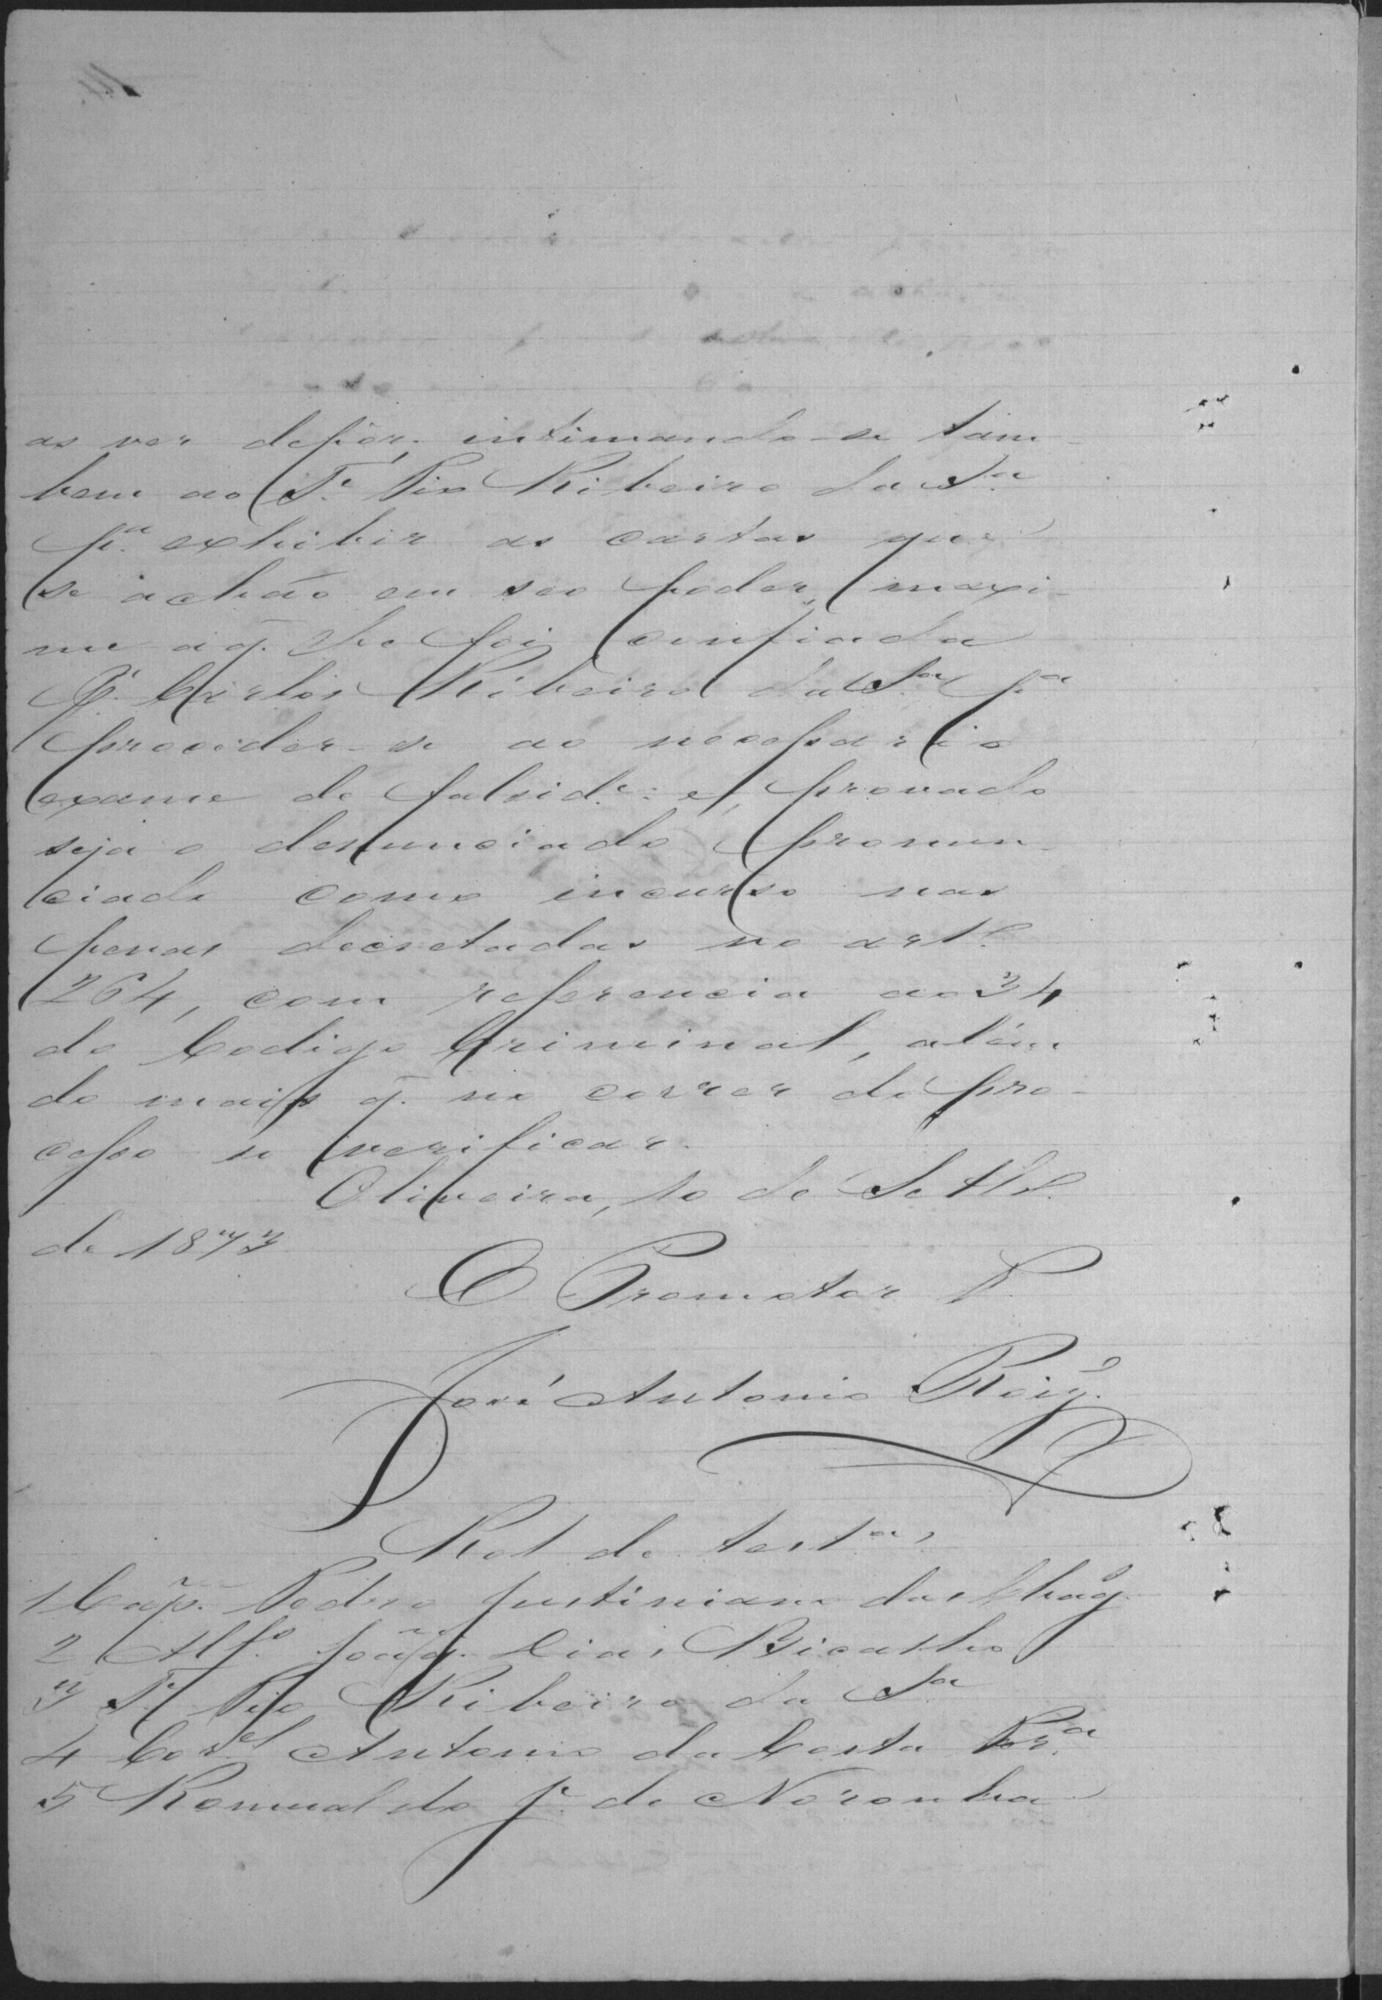 as ver depôr, intimando-se tam-
bem ao T.e Pio Ribeiro da S.a
p.a exhibir as cartas que
se achão em seo poder, maxi-
me a q. lhe foi confiada
p. Carlos Ribeiro da S.a p.a
proceder-se ao necessario
exame de falsid.e: e, provado
seja o denunciado pronun-
ciado como incurso nas
penas decretadas no art.o
264, com referencia ao 34
do Codigo Criminal, além
do mais q. no correr do pro-
cesso se verificar.
Oliveira, 10 de Setb.o
de 1873
O Promotor P.
José Antonio Roiz.
Rol de test.as
1 Cap.m Pedro Justiniano das Chag.
2 Alf.o Joaq. Dias Bicalho
3 T.e Pio Ribeiro da S.a
4 Cor.el Antonio da Costa Pr.a
5 Romualdo J.e de Noronha